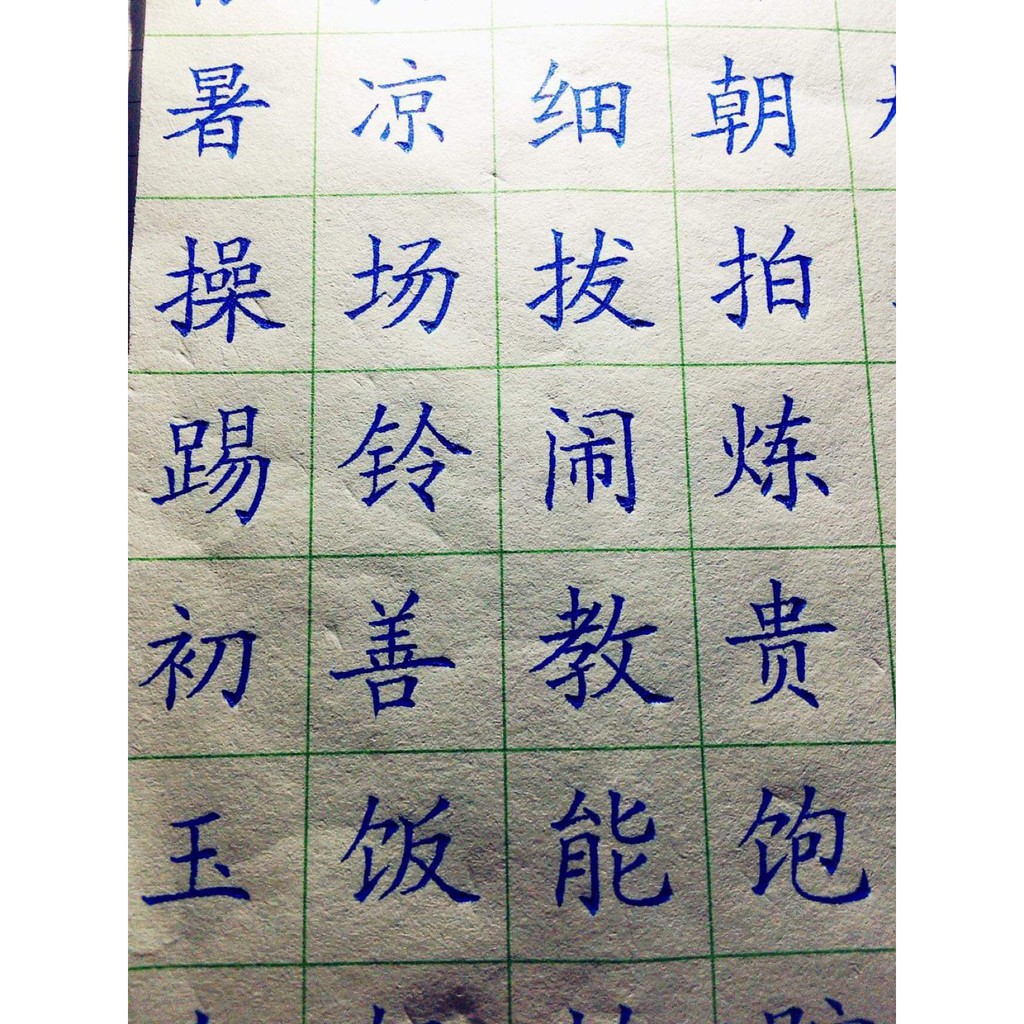 暑凉细朝
操场拔拍
踢铃闹炼
初善教贵
玉饭能饱